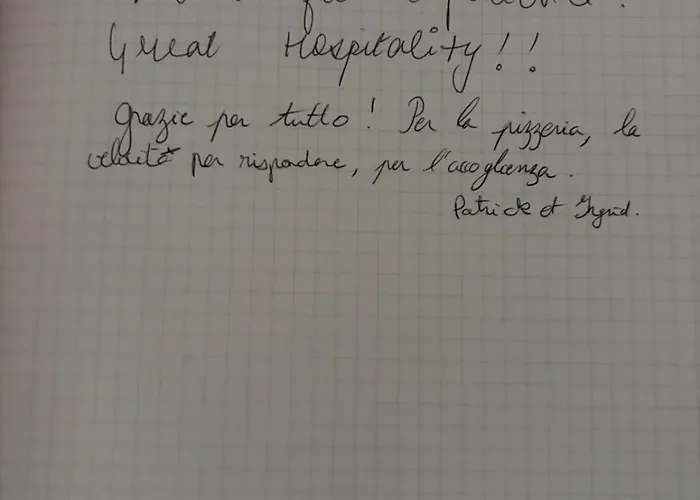 Great Hospitality!!
grazie per tutto! Per la pizzeria, la
velocità per rispondere, per l'accoglienza.
Patrick et Ingrid.